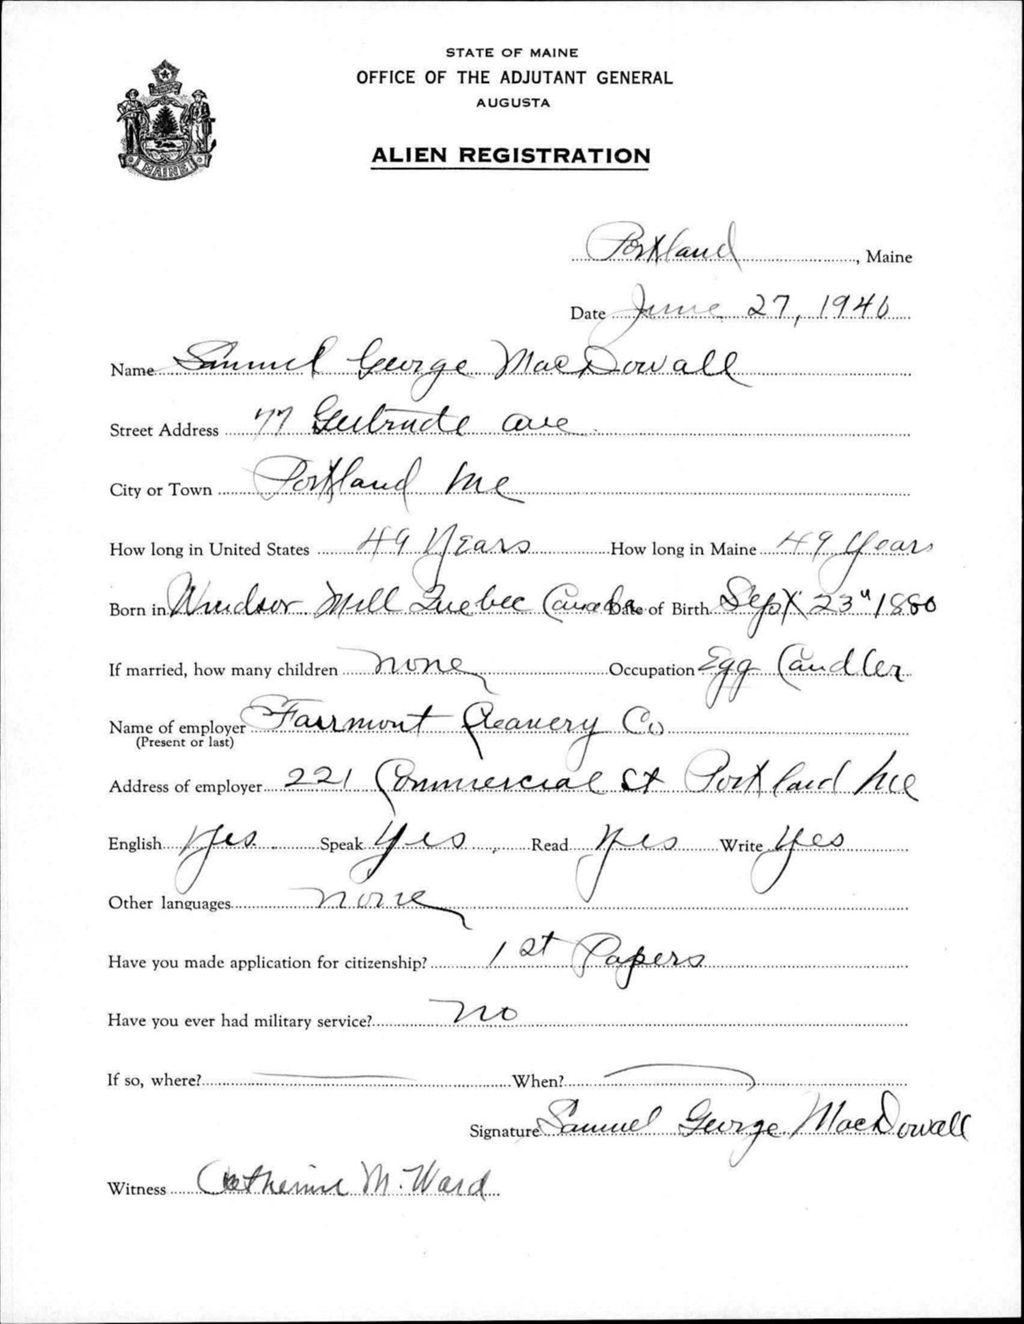 STATE OF MAINE
OFFICE OF THE ADJUTANT GENERAL
AUGUSTA
MAINE
ALIEN REGISTRATION
Portland, Maine
Date June 27, 1940
Name Samuel George MacDowall
Street Address 77 Gertrude ave
City or Town Portland Me
How long in United States 49 Years How long in Maine 49 Years
Born in Windsor Mill Quebec Canada Date of Birth Sept 23rd 1880
If married, how many children none Occupation Egg Candler
Name of employer Fairmont Creamery Co
(Present or last)
Address of employer 221 Commercial St Portland Me
English Yes. Speak Yes Read Yes Write Yes
Other languages none
Have you made application for citizenship? 1st Papers
Have you ever had military service? no
If so, where? When?
Signature Samuel George MacDowall
Witness Catherine M. Ward